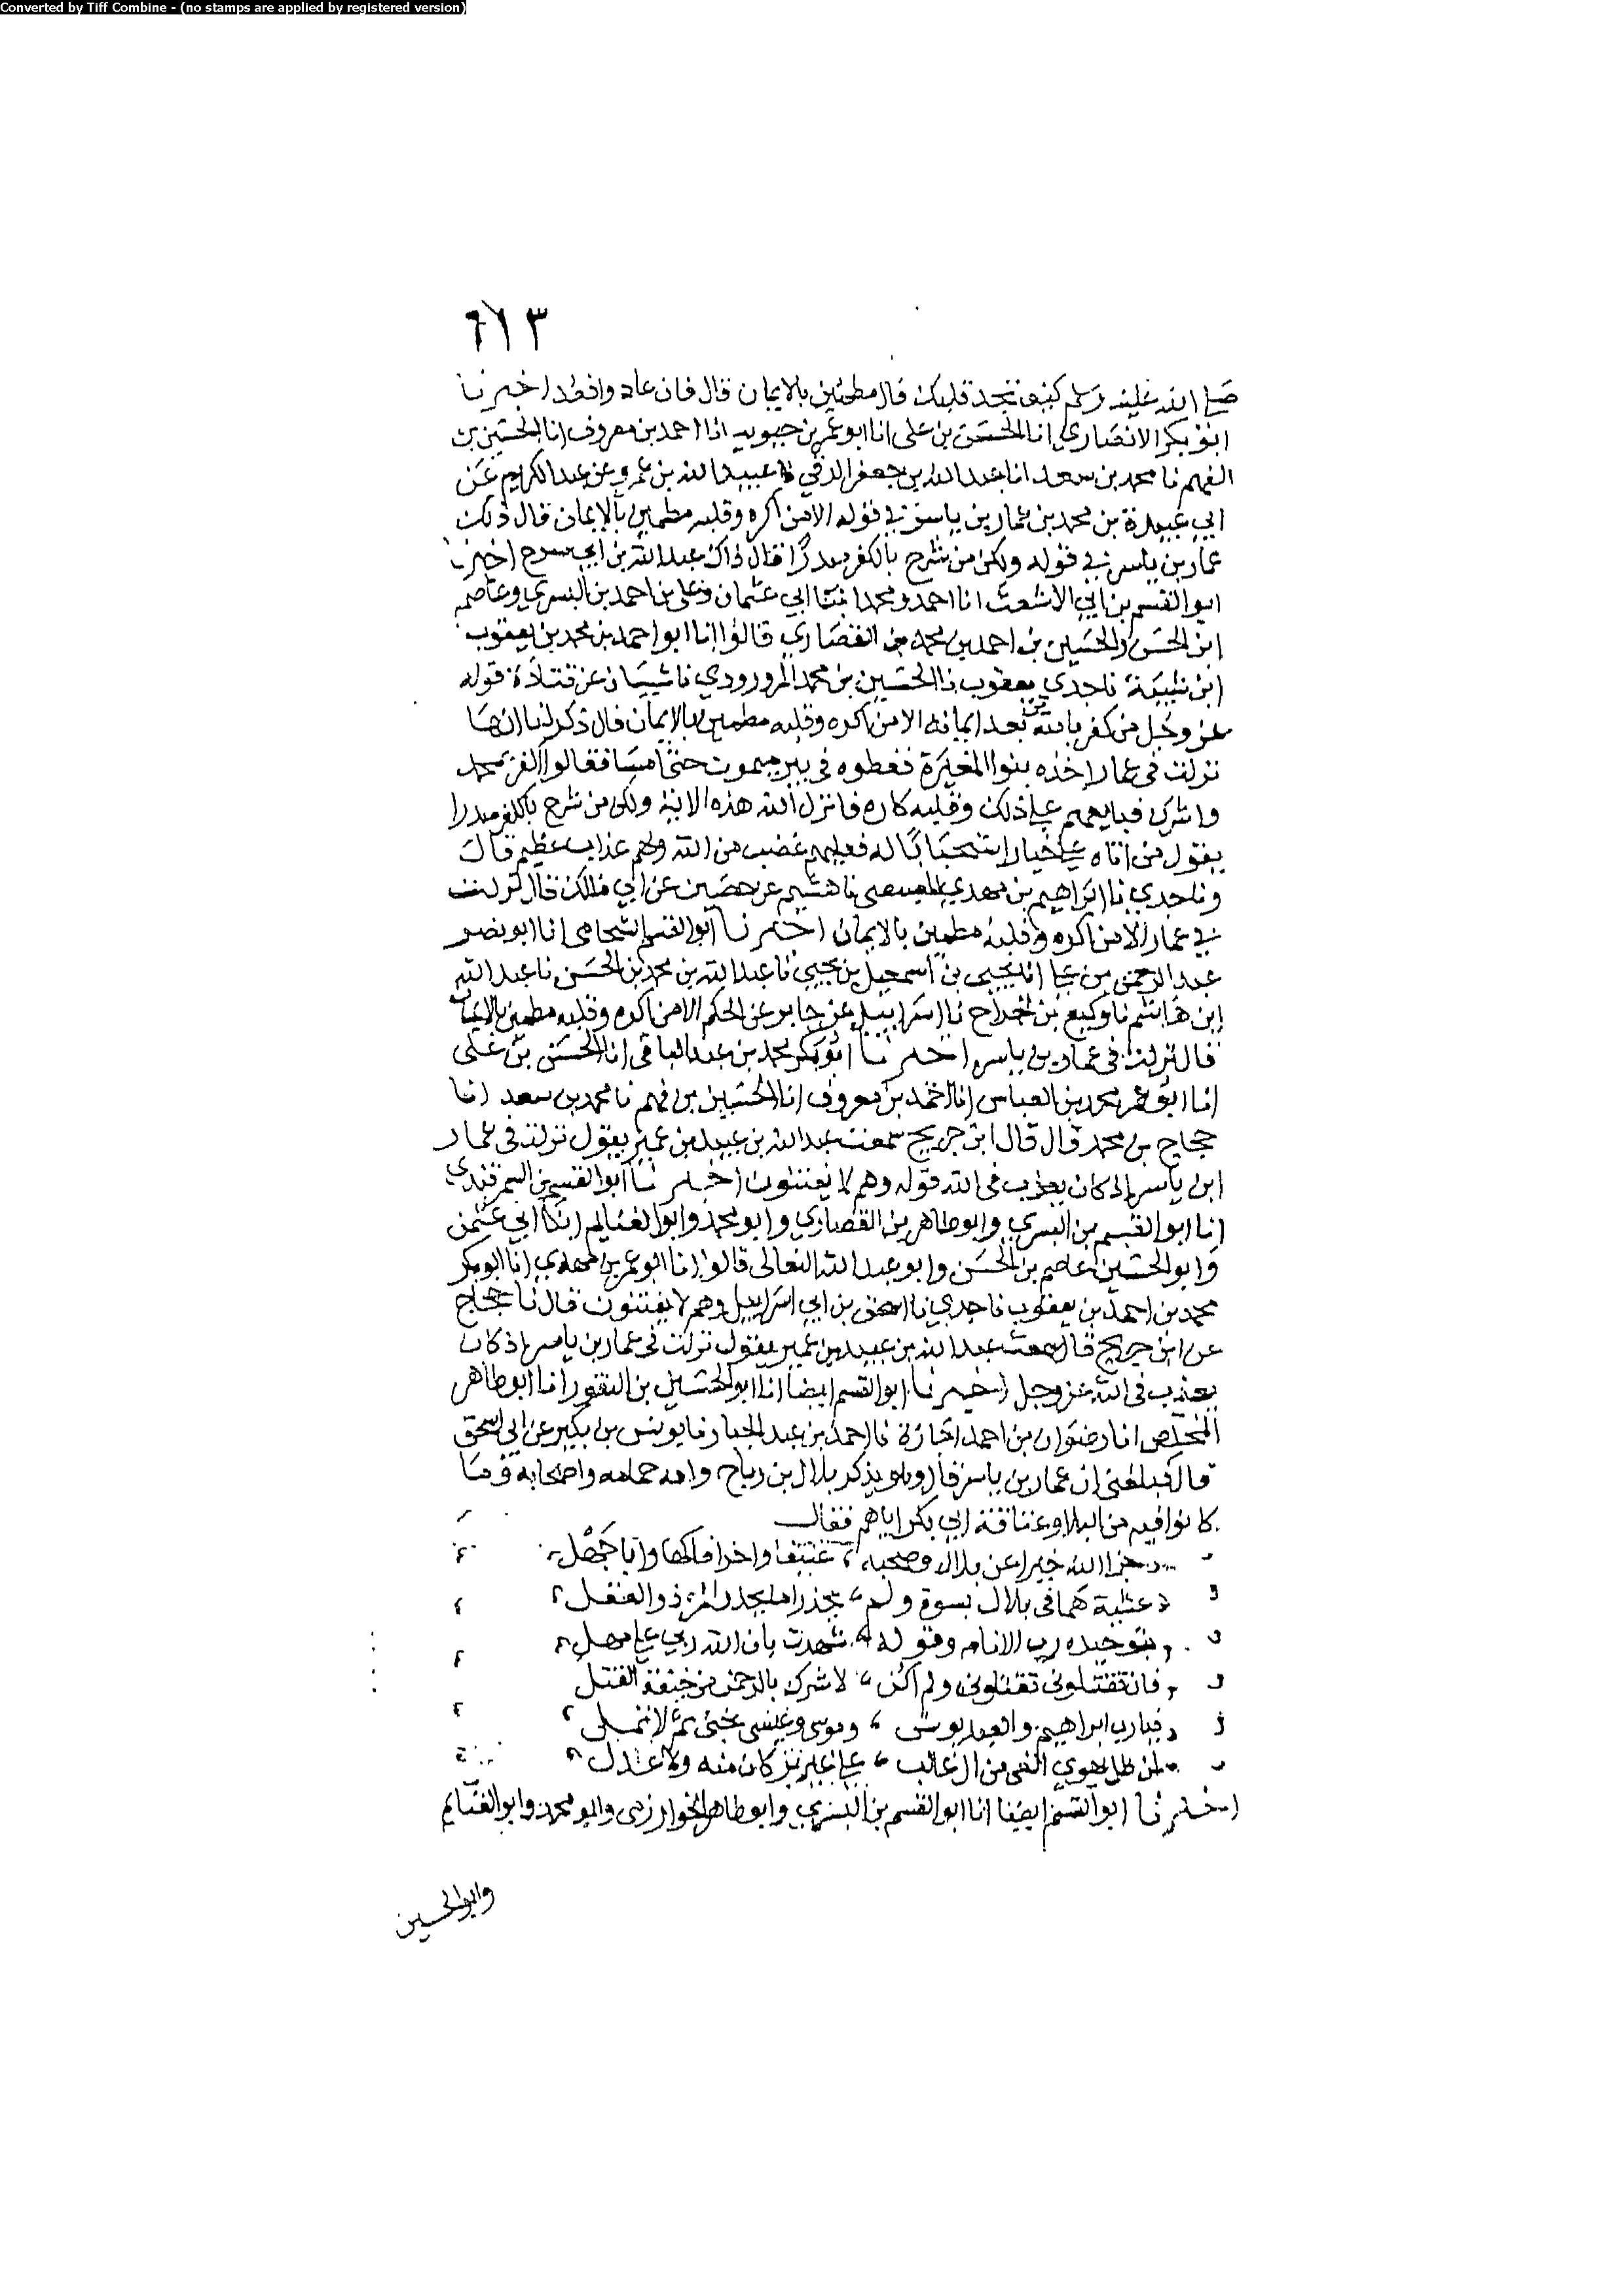 Converted by Tiff Combine - (no stamps are applied by registered version)
٦١٣
صلى الله عليه وسلم كيف تجد قلبك قال مطمئن بالايمان قال فان عادوا فعد اخبرنا
ابو بكر الانصاري انا الحسن بن علي انا ابو عمر بن حيويه انا احمد بن معروف انا الحسين بن
الفهم نا محمد بن سعد انا عبد الله بن جعفر الرقي نا عبيد الله بن عمرو عن عبد الكريم عن
ابي عبيدة بن محمد بن عمار بن ياسر في قوله الا من اكره وقلبه مطمئن بالايمان قال ذلك
عمار بن ياسر في قوله ولكن من شرح بالكفر صدرا قال ذاك عبد الله بن ابي سرح اخبرنا
ابو القسم بن ابي الاشعث انا احمد ومحمد ابنا ابي عثمان وعلي بن احمد بن البسري وعاصم
ابن الحسن والحسين بن احمد بن محمد بن القصاري قالوا انا ابو احمد بن محمد بن يعقوب
ابن شيبة نا جدي يعقوب نا الحسين بن محمد المروروذي نا شيبان عن قتادة قوله
عز وجل من كفر بالله من بعد ايمانه الا من اكره وقلبه مطمئن بالايمان قال ذكر لنا انها
نزلت في عمار اخذه بنوا المغيرة فغطوه في بير ميمون حتى امسا فقالوا اكفر بمحمد
واشرك فبايعهم على ذلك وقلبه كاره فانزل الله هذه الاية ولكن من شرح بالكفر صدرا
يقول من اتاه على خيار استحبابا له فعليهم غضب من الله ولهم عذاب عظيم قال
ونا جدي نا ابراهيم بن مهدي المصيصي نا هشيم عن حصين عن ابي مالك قال نزلت
في عمار الا من اكره وقلبه مطمئن بالايمان اخبرنا ابو القسم الشحامي انا ابو نصر
عبد الرحمن بن علي انا يحيى بن اسمعيل بن يحيى نا عبد الله بن محمد بن الحسن نا عبد الله
ابن هاشم نا وكيع بن الجراح نا اسراييل عن جابر عن الحكم الا من اكره وقلبه مطمئن بالايمان
قال نزلت في عمار بن ياسر اخبرنا ابو بكر محمد بن عبد الباقي انا الحسن بن علي
انا ابو عمر محمد بن العباس انا احمد بن معروف انا الحسين بن فهم نا محمد بن سعد انا
حجاج بن محمد قال قال ابن جريج سمعت عبد الله بن عبيد بن عمير يقول نزلت في عمار
ابن ياسر اذ كان يعذب في الله قوله وهم لا يفتنون اخبرنا ابو القسم بن السمرقندي
انا ابو القسم بن البسري وابو طاهر بن القصاري وابو محمد وابو الغنايم ابنا ابي عثمن
وابو الحسين عاصم بن الحسن وابو عبد الله النعالي قالوا انا ابو عمر بن مهدي انا ابو بكر
محمد بن احمد بن يعقوب نا جدي نا اسحق بن ابي اسراييل وهم لا يفتنون قال نا حجاج
عن ابن جريج قال سمعت عبد الله بن عبيد بن عمير يقول نزلت في عمار بن ياسر اذ كان
يعذب في الله عز وجل اخبرنا ابو القسم ايضا انا ابو الحسين بن النقور انا ابو طاهر
المخلص انا رضوان بن احمد اجازة نا احمد بن عبد الجبار نا يونس بن بكير عن ابن اسحق
قال فبلغني ان عمار بن ياسر قال وهو يذكر بلال بن رباح وامه حمامه واصحابه وما
كانوا فيه من البلا وعتاقة ابي بكر اياهم فقال
جزا الله خيرا عن بلال وصحبه عتيقا واخزا فاكها وابا جهل
عشية هما في بلال بسوة ولم يحذرا ما يحذر المرء ذو العقل
بتوحيده رب الانام وقوله شهدت بان الله ربي على مهل
فان تقتلوني تقتلوني ولم اكن لاشرك بالرحمن من خيفة القتل
فيا رب ابراهيم والعبد يونس وموسى وعيسى نجني ثم لا تملي
لمن ظل يهوي الغي من ال غالب على غير بر كان منه ولا عدل
اخبرنا ابو القسم ايضا انا ابو القسم بن البسري وابو طاهر الخوارزمي وابو محمد وابو الغنايم
وابو الحسين